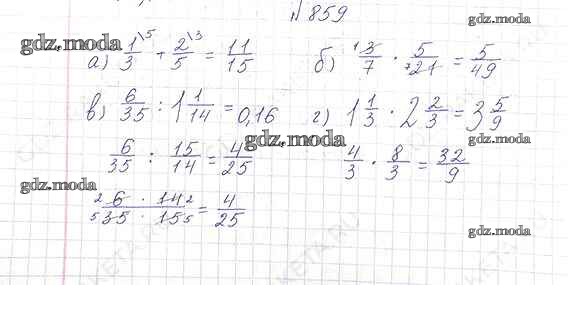 № 859
gdz.moda
gdz.moda
а) 1\5/3 + 2\3/5 = 11/15 б) 1 3/7 · 5/7 21 = 5/49
gdz.moda
в) 6/35 : 1 1/14 = 0,16 г) 1 1/3 · 2 2/3 = 3 5/9
gdz.moda
gdz.moda
6/35 : 15/14 = 4/25 4/3 · 8/3 = 32/9
gdz.moda
2 6 · 14 2/5 35 · 15 5 = 4/25
gdz.moda